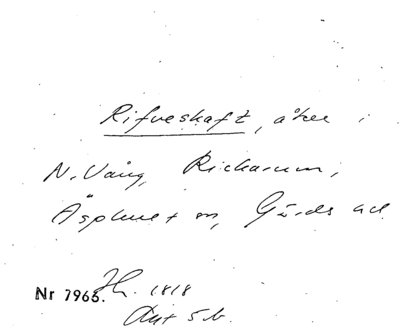 Rifveskaft, åker i
N. Vång, Rickarum,
Äsphult sn, Gärds hd
Nr 7966. Jh. 1818
Akt 5 b.